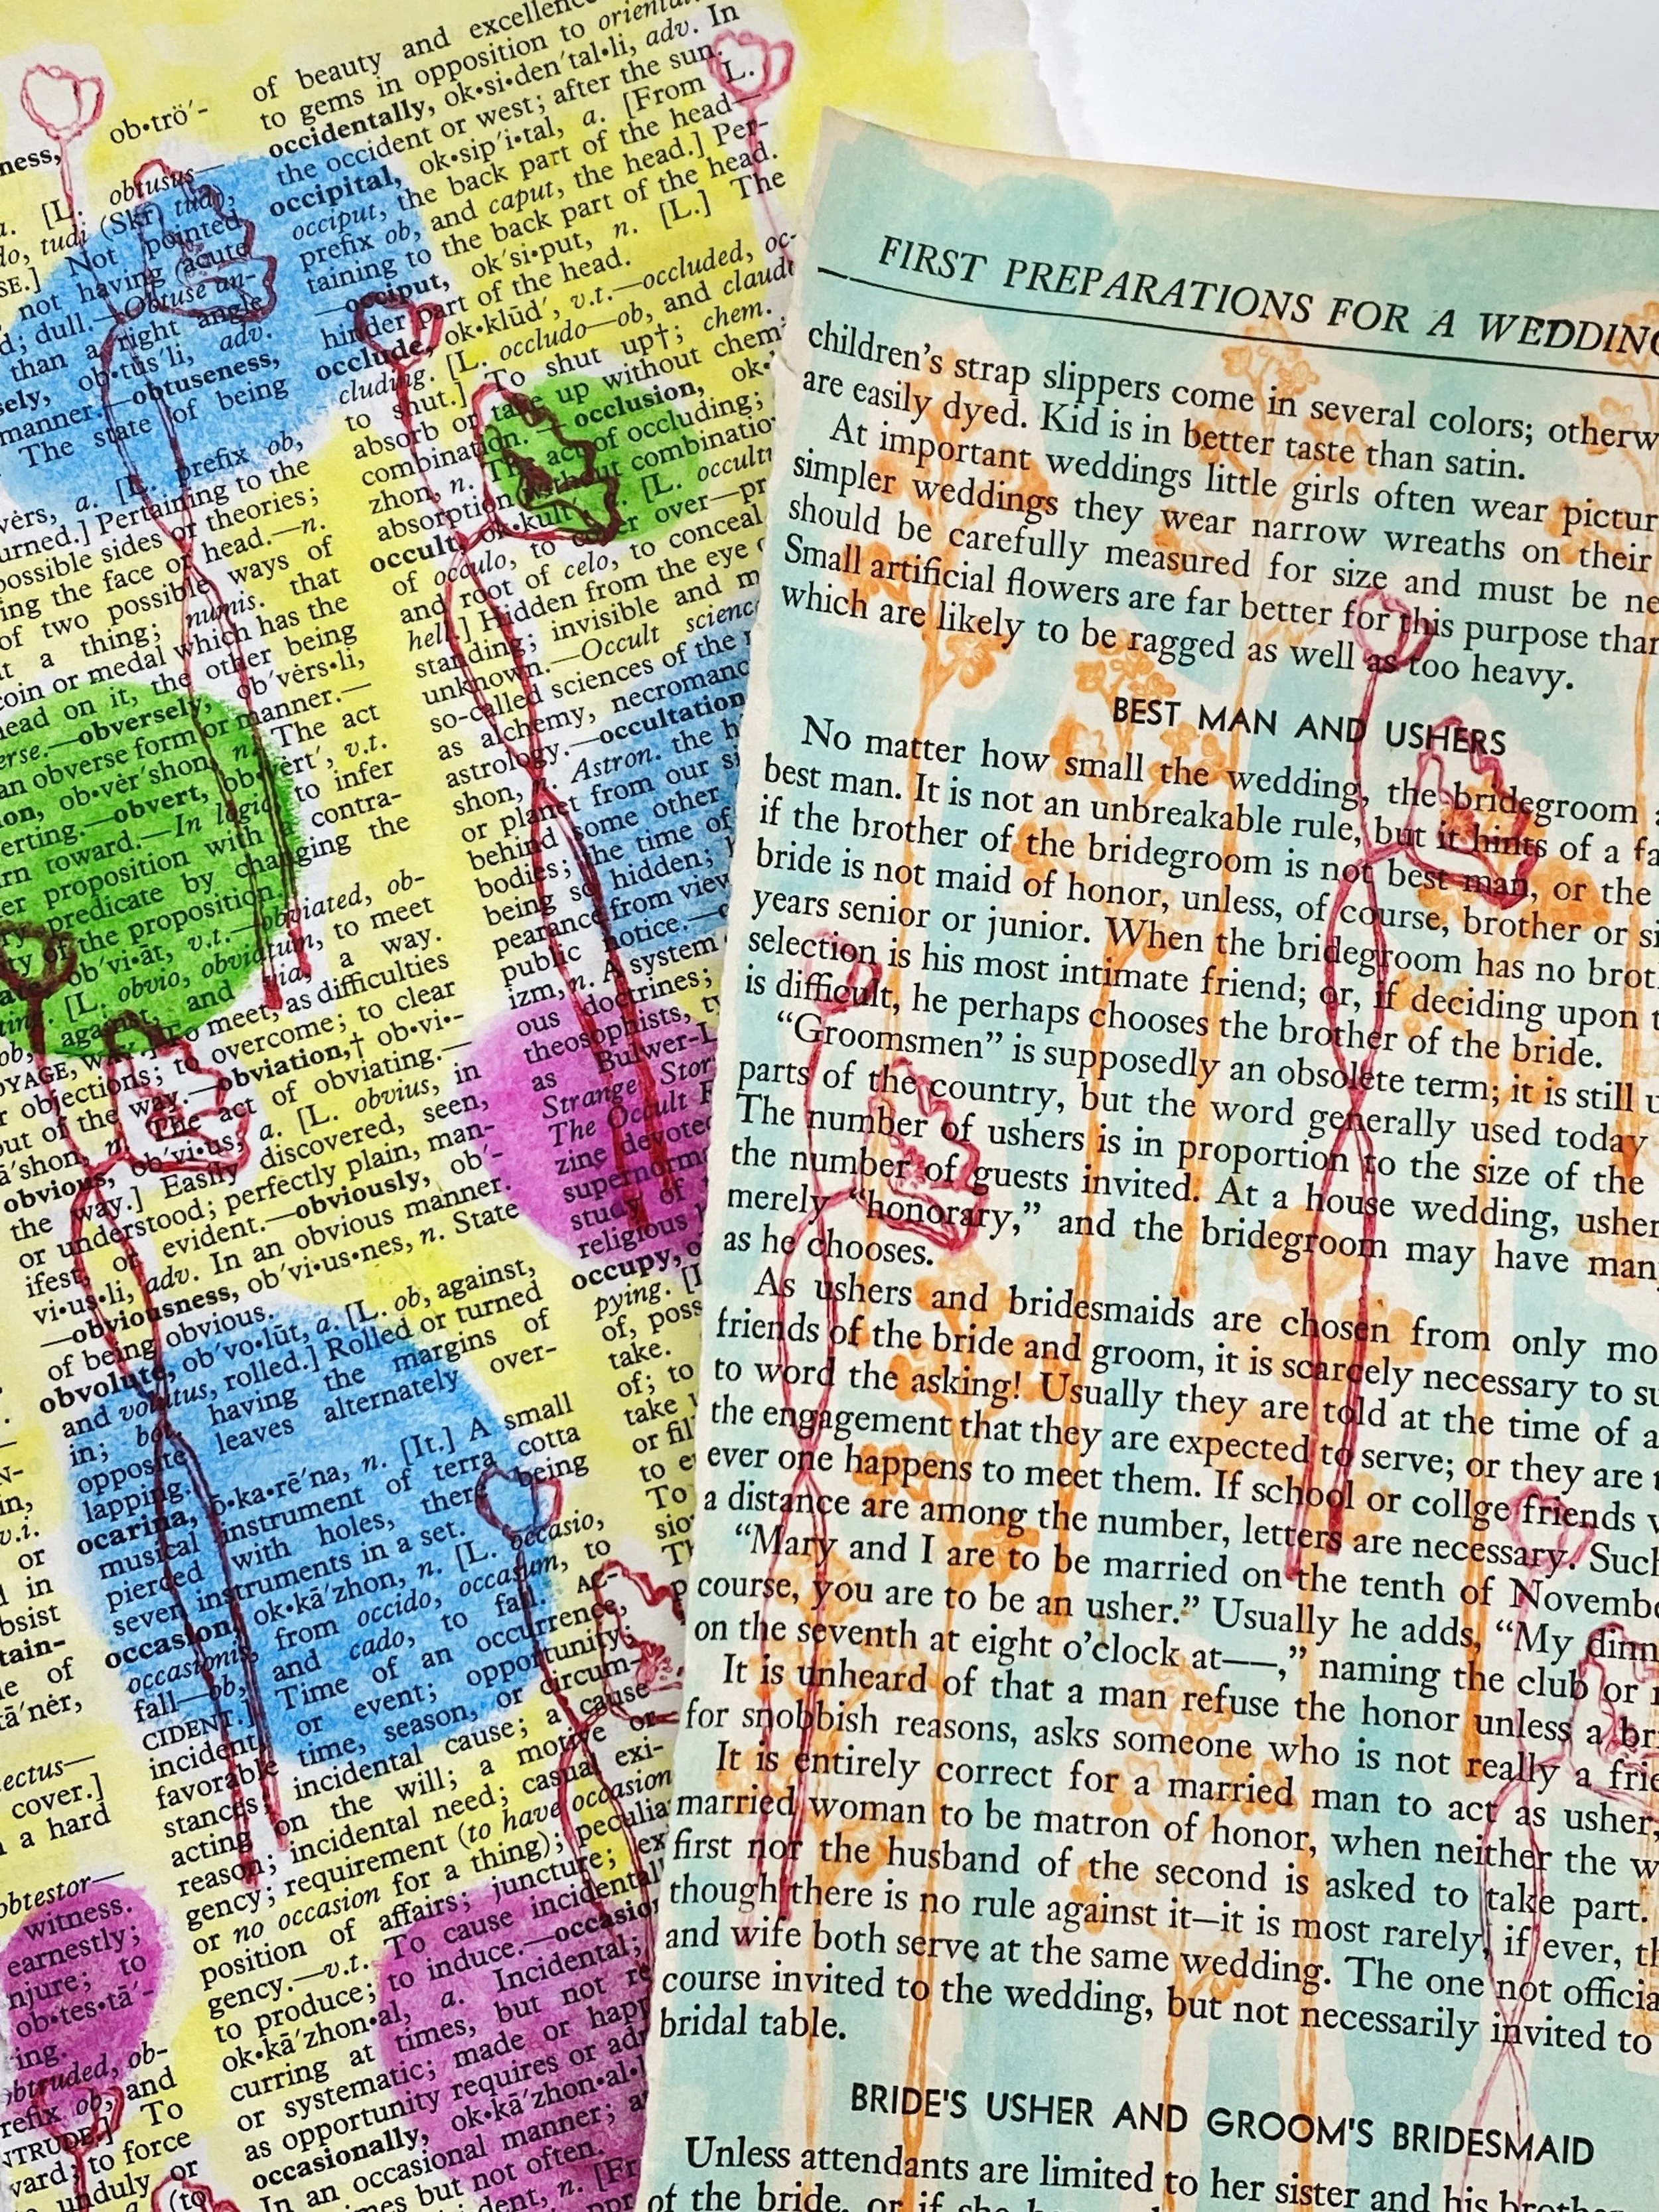 ob•trö′-
ness,
a. [L. obtusus—
do, tudi (Skr) tud),
SE.] Not pointed
not having (acute
d; dull.—Obtuse an-
than a right angle
ob•tūs′li, adv.
manner.—obtuseness,
The state of being
a. [L. prefix ob,
urned.] Pertaining to the
possible sides or theories;
ing the face of head.—n.
of two possible ways of
at a thing; numis. that
coin or medal which has the
head on it, the other being
erse.—obversely, ob′vėrs•li,
an obverse form or manner.—
ion, ob•vėr′shon, n. The act
erting.—obvert, ob•vėrt′, v.t.
rn toward.—In logic, to infer
er proposition with a contra-
ry predicate by changing the
ty of the proposition.
ob′vi•āt, v.t.—obviated, ob-
[L. obvio, obviatum, to meet
against, and via, a way.
To meet, as difficulties
r objections; to overcome; to clear
out of the way.—obviation,† ob•vi•-
ā′shon, n. The act of obviating.—
obvious, ob′vi•us, a. [L. obvius, in
the way.] Easily discovered, seen,
or understood; perfectly plain, man-
ifest, or evident.—obviously, ob′-
vi•us•li, adv. In an obvious manner.
—obviousness, ob′vi•us•nes, n. State
of being obvious.
obvolute, ob′vo•lūt, a. [L. ob, against,
and volutus, rolled.] Rolled or turned
in; bot. having the margins of
opposite leaves alternately over-
lapping.
ocarina, o•ka•rē′na, n. [It.] A small
musical instrument of terra cotta
pierced with holes, there being
seven instruments in a set.
occasion, ok•kā′zhon, n. [L. occasio,
occasionis, from occido, occasum, to
fall—ob, and cado, to fall. AC-
CIDENT.] Time of an occurrence,
incident, or event; opportunity;
favorable time, season, or circum-
stances; incidental cause; a cause
acting on the will; a motive or
reason; incidental need; casual exi-
gency; requirement (to have occasion
or no occasion for a thing); peculiar
position of affairs; juncture; ex
gency.—v.t. To cause incidentall
to produce; to induce.—occasio
ok•kā′zhon•al, a. Incidental;
curring at times, but not re
or systematic; made or happ
as opportunity requires or adm
occasionally, ok•kā′zhon•al•l
In an occasional manner; a
mes but not often.
dent, n. [Fr
v.i.
or
in
bsist
tain-
of
tā′nėr,
ectus—
cover.]
a hard
obtestor—
witness.
earnestly;
njure; to
ob•tes•tā′-
ing.
obtruded, ob-
refix ob, and
NTRUDE.] To
vard; to force
unduly or
(to
of beauty and excellence
to gems in opposition to oriental
occidentally, ok•si•den′tal•li, adv. In
the occident or west; after the sun.
occipital, ok•sip′i•tal, a. [From L.
occiput, the back part of the head—
prefix ob, and caput, the head.] Per-
taining to the back part of the head.
—occiput, ok′si•put, n. [L.] The
hinder part of the head.
occlude, ok•klūd′, v.t.—occluded, oc-
cluding. [L. occludo—ob, and claudo
to shut.] To shut up†; chem.
absorb or take up without chem
combination.—occlusion, ok•
zhon, n. The act of occluding;
absorption without combinatio
occult, ok•kult′, [L. occultu
of occulo, to cover over—pr
and root of celo, to conceal
hell.] Hidden from the eye
standing; invisible and m
unknown.—Occult scienc
so-called sciences of the
as alchemy, necromanc
astrology.—occultation
shon, n. Astron. the h
or planet from our si
behind some other
bodies; the time of
being so hidden;
pearance from view
public notice.—
izm, n. A system
ous doctrines;
theosophists,
as Bulwer-L
Strange Stor
The Occult
zine devoted
supernorma
study of
religious
occupy,
pying. [
of, poss
take.
of; to
take
or fil
to
To
sio
FIRST PREPARATIONS FOR A WEDDING
children's strap slippers come in several colors; otherw
are easily dyed. Kid is in better taste than satin.
At important weddings little girls often wear pictur
simpler weddings they wear narrow wreaths on their
should be carefully measured for size and must be ne
Small artificial flowers are far better for this purpose than
which are likely to be ragged as well as too heavy.
BEST MAN AND USHERS
No matter how small the wedding, the bridegroom a
best man. It is not an unbreakable rule, but it hints of a fa
if the brother of the bridegroom is not best man, or the
bride is not maid of honor, unless, of course, brother or si
years senior or junior. When the bridegroom has no brot
selection is his most intimate friend; or, if deciding upon t
is difficult, he perhaps chooses the brother of the bride.
"Groomsmen" is supposedly an obsolete term; it is still u
parts of the country, but the word generally used today
The number of ushers is in proportion to the size of the
the number of guests invited. At a house wedding, usher
merely "honorary," and the bridegroom may have many
as he chooses.
As ushers and bridesmaids are chosen from only mo
friends of the bride and groom, it is scarcely necessary to su
to word the asking! Usually they are told at the time of a
the engagement that they are expected to serve; or they are t
ever one happens to meet them. If school or collge friends w
a distance are among the number, letters are necessary. Such
"Mary and I are to be married on the tenth of Novembe
course, you are to be an usher." Usually he adds, "My dinn
on the seventh at eight o'clock at——," naming the club or r
It is unheard of that a man refuse the honor unless a bri
for snobbish reasons, asks someone who is not really a frie
It is entirely correct for a married man to act as usher,
married woman to be matron of honor, when neither the w
first nor the husband of the second is asked to take part.
though there is no rule against it—it is most rarely, if ever, th
and wife both serve at the same wedding. The one not officia
course invited to the wedding, but not necessarily invited to
bridal table.
BRIDE'S USHER AND GROOM'S BRIDESMAID
Unless attendants are limited to her sister and his brother
of the bride, or if she